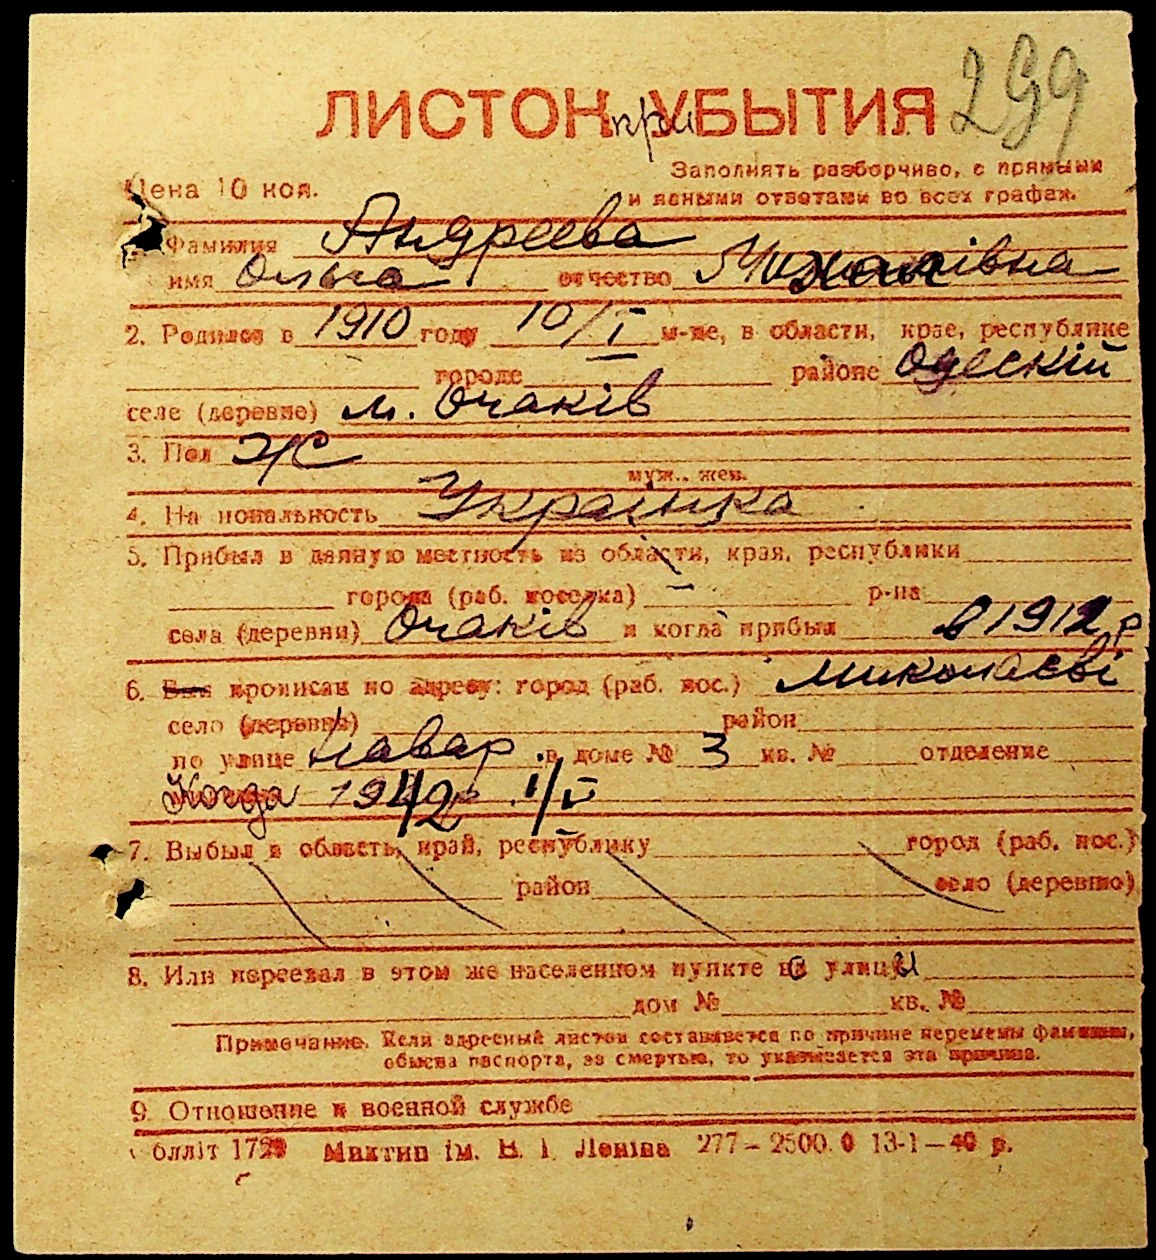 299
ЛИСТОК при УБЫТИЯ
Заполнять разборчиво, с прямыми
Цена 10 коп.
и ясными ответами во всех графах.
Фамилия Андреева
имя Ольга отчество Михайлівна
2. Родился в 1910 году 10/I м-це, в области, крае, республике
городе районе Одескій
селе (деревне) м. Очаків
3. Пол ж
муж., жен.
4. Национальность Українка
5. Прибыл в данную местность из области, края, республики
города (раб. поселка) — р-на
села (деревни) Очаків и когда прибыл в 1912 р
6. Был прописан по адресу: город (раб. пос.) Миколаєві
село (деревня) район
по улице Навар. в доме № 3 кв. № отделение
Когда 1942 1/V
7. Выбыл в область, край, республику город (раб. пос.)
район село (деревню)
8. Или переехал в этом же населенном пункте по улице
дом № кв. №
Примечание. Если адресный листок составляется по причине перемены фамилии,
обмена паспорта, за смертью, то указывается эта причина.
9. Отношение к военной службе
облліт 1729 Миктип ім. В. І. Леніна 277 – 2500.0 13-1–40 р.